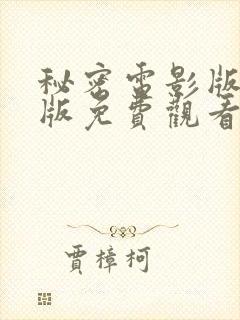 秘密電影版
版免費觀看
賈樟柯